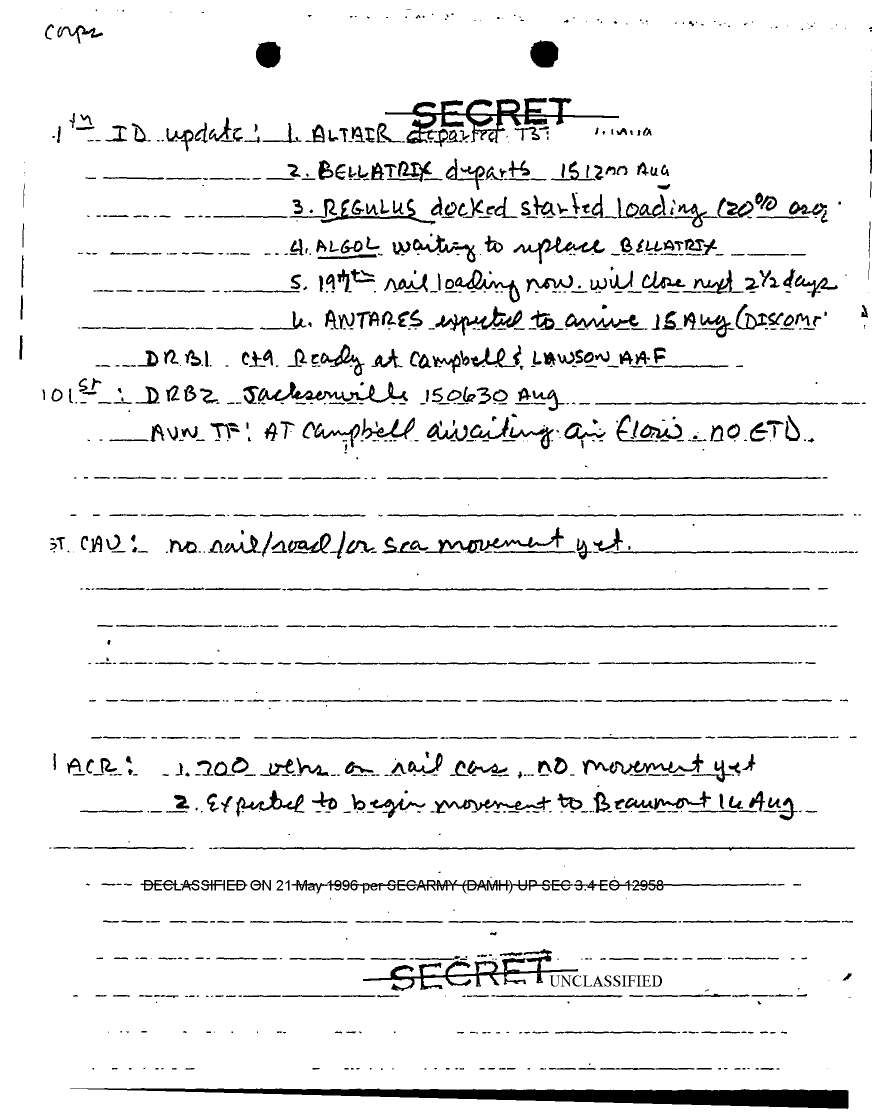 Corps
SECRET
th ID update: 1. ALTAIR departed
2. BELLATRIX departs 151200 Aug
3. REGULUS docked started loading (20%
4. ALGOL waiting to replace BELLATRIX
5. 197th rail loading now. will close next 2½ days
6. ANTARES expected to arrive 15 Aug (DISCOM
DRB1 Ready at Campbell & LAWSON AAF
101st: DRB2 Jacksonville 150630 Aug
AVN TF: AT Campbell awaiting air flow. no ETD.
ST CAV: no rail/road/or sea movement yet.
ACR: 1. 700 vehs on rail cars, no movement yet
2. Expected to begin movement to Beaumont 16 Aug
DECLASSIFIED ON 21 May 1996 per SECARMY (DAMH) UP SEC 3.4 EO 12958
SECRET UNCLASSIFIED